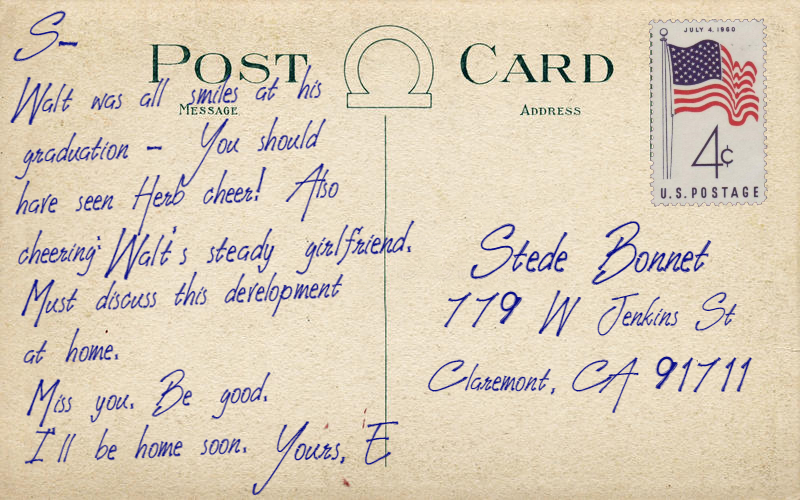 S-
POST CARD
Walt was all smiles at his
MESSAGE
graduation - You should
have seen Herb cheer! Also
cheering: Walt's steady girlfriend.
Must discuss this development
at home.
Miss you. Be good.
I'll be home soon. Yours, E
ADDRESS
JULY 4, 1960
4¢
U.S. POSTAGE
Stede Bonnet
779 W Jenkins St
Claremont, CA 91711